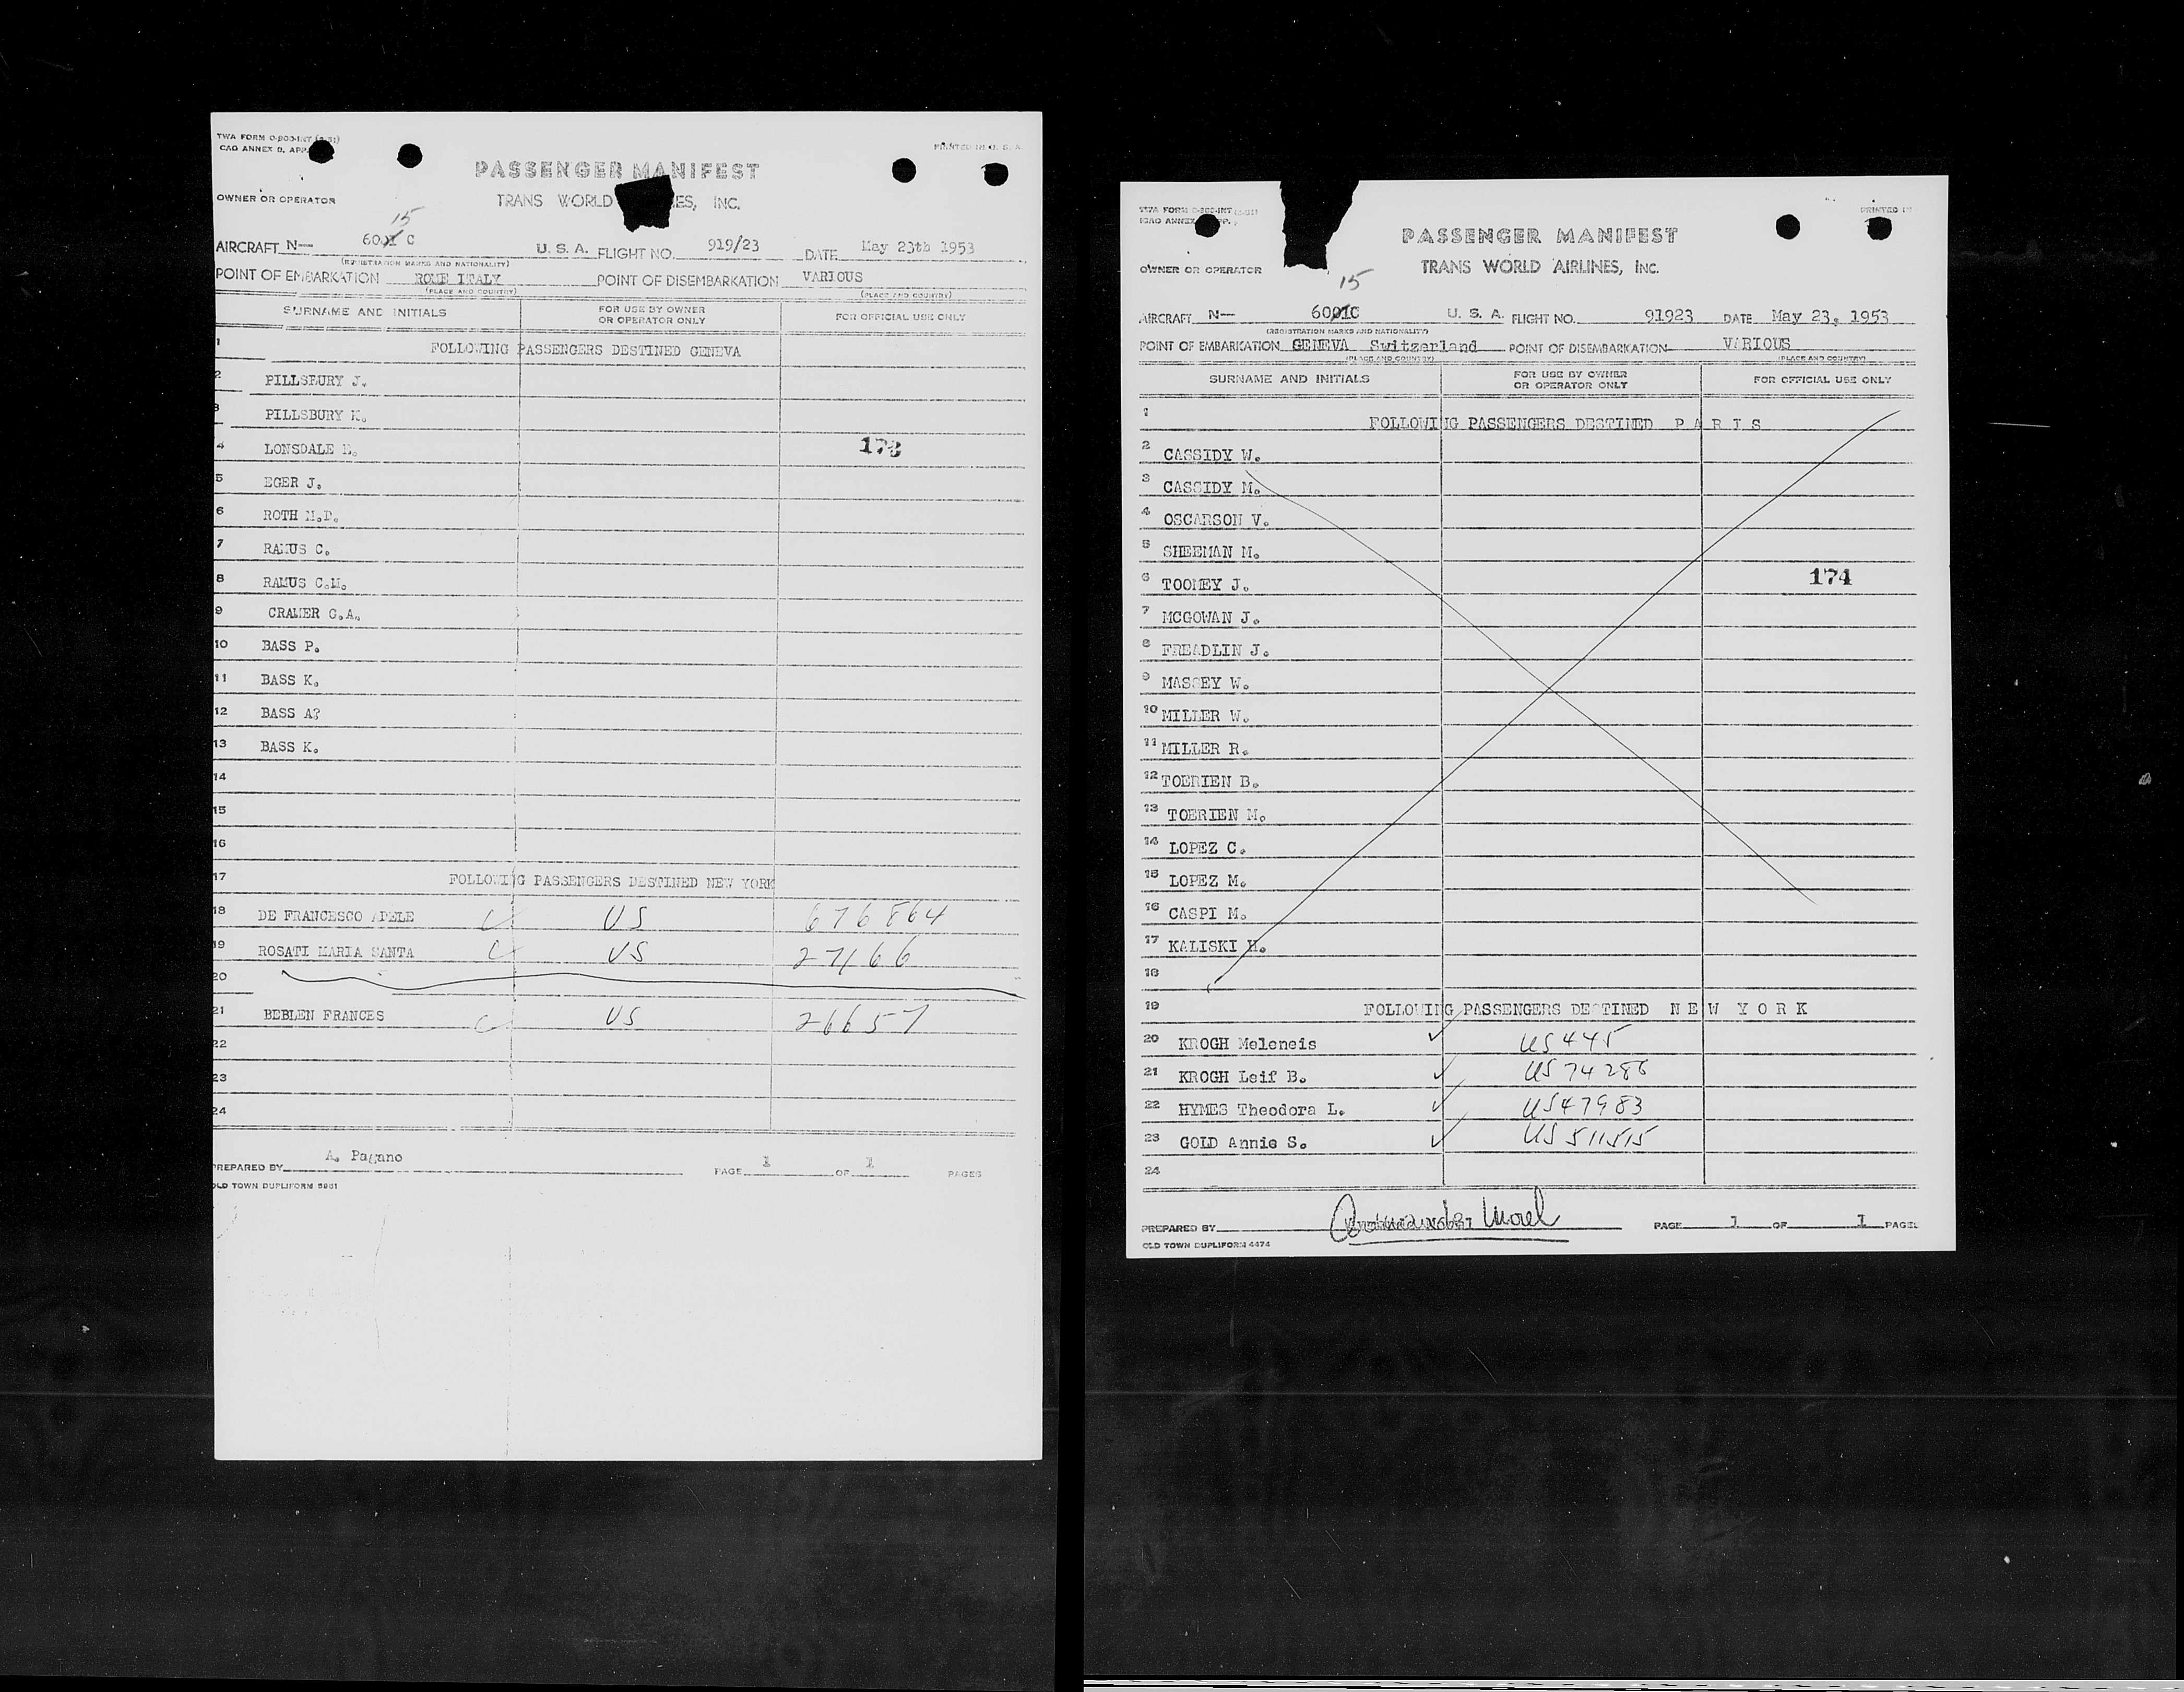 TWA FORM
CAO ANNEX D, APP.
PRINTED IN U. S. A.
PASSENGER MANIFEST
OWNER OR OPERATOR
TRANS WORLD ES, INC.
15
AIRCRAFT N— 6001 C U. S. A. FLIGHT NO. 919/23 DATE May 23th 1953
(REGISTRATION MARKS AND NATIONALITY)
POINT OF EMBARKATION ROME ITALY POINT OF DISEMBARKATION VARIOUS
(PLACE AND COUNTRY) (PLACE AND COUNTRY)
SURNAME AND INITIALS FOR USE BY OWNER OR OPERATOR ONLY FOR OFFICIAL USE ONLY
1 FOLLOWING PASSENGERS DESTINED GENEVA
2 PILLSBURY J.
3 PILLSBURY K.
4 LONSDALE 173
5 EGER J.
6 ROTH
7 RAMUS C.
8 RAMUS C.M.
9 CRAMER G.A.
10 BASS P.
11 BASS K.
12 BASS A?
13 BASS K.
14
15
16
17 FOLLOWING PASSENGERS DESTINED NEW YORK
18 DE FRANCESCO ADELE US 676864
19 ROSATI MARIA SANTA US 27166
20
21 BEBLEN FRANCES US 26657
22
23
24
PREPARED BY A. Pagano PAGE 1 OF 1 PAGES
OLD TOWN DUPLIFORM 5961
TWA FORM
ICAO ANNEX
PRINTED IN
PASSENGER MANIFEST
OWNER OR OPERATOR
TRANS WORLD AIRLINES, INC.
15
AIRCRAFT N— 6001C U. S. A. FLIGHT NO. 91923 DATE May 23, 1953
(REGISTRATION MARKS AND NATIONALITY)
POINT OF EMBARKATION GENEVA Switzerland POINT OF DISEMBARKATION VARIOUS
(PLACE AND COUNTRY) (PLACE AND COUNTRY)
SURNAME AND INITIALS FOR USE BY OWNER OR OPERATOR ONLY FOR OFFICIAL USE ONLY
1 FOLLOWING PASSENGERS DESTINED P A R I S
2 CASSIDY W.
3 CASSIDY M.
4 OSCARSON V.
5 SHEEMAN M.
6 TOOMEY J. 174
7 MCGOWAN J.
8 FREADLIN J.
9 MASSEY W.
10 MILLER W.
11 MILLER R.
12 TOERIEN B.
13 TOERIEN M.
14 LOPEZ C.
15 LOPEZ M.
16 CASPI M.
17 KALISKI H.
18
19 FOLLOWING PASSENGERS DESTINED N E W Y O R K
20 KROGH Meleneis US 445
21 KROGH Leif B. US 74286
22 HYMES Theodora L. US 47983
23 GOLD Annie S. US 511515
24
PREPARED BY PAGE 1 OF 1 PAGES
OLD TOWN DUPLIFORM 4474